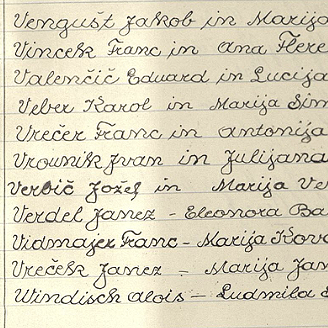 Vengušt Jakob in Marija
Vincek Franc in Ana Flere
Valenčič Eduard in Lucija
Veber Karol in Marija Sim
Vrečer Franc in Antonija
Vrounik Ivan in Julijana
Verbič Jožef in Marija Ve
Verdel Janez - Eleonora Ba
Vidmajer Franc - Marija Kova
Vreček Janez - Marija Jan
Windisch Alois - Ludmila